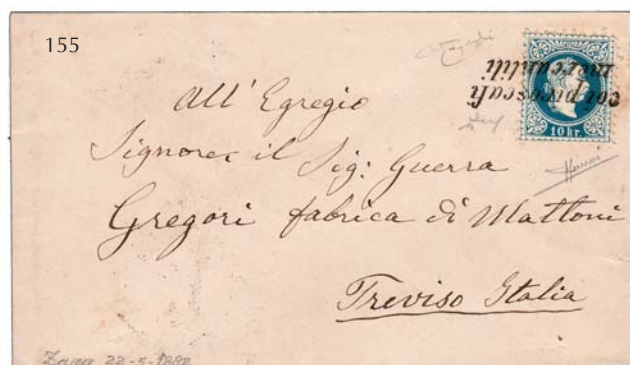 155
coi piroscafi
mercantili
10 kr.
All' Egregio
Signore il Sig: Guerra
Gregori fabrica di Mattoni
Treviso Italia
Zara 22-5-1882